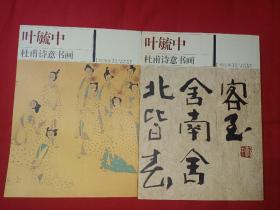 叶毓中
杜甫诗意书画
叶毓中
杜甫诗意书画
客至
舍南舍
北皆春